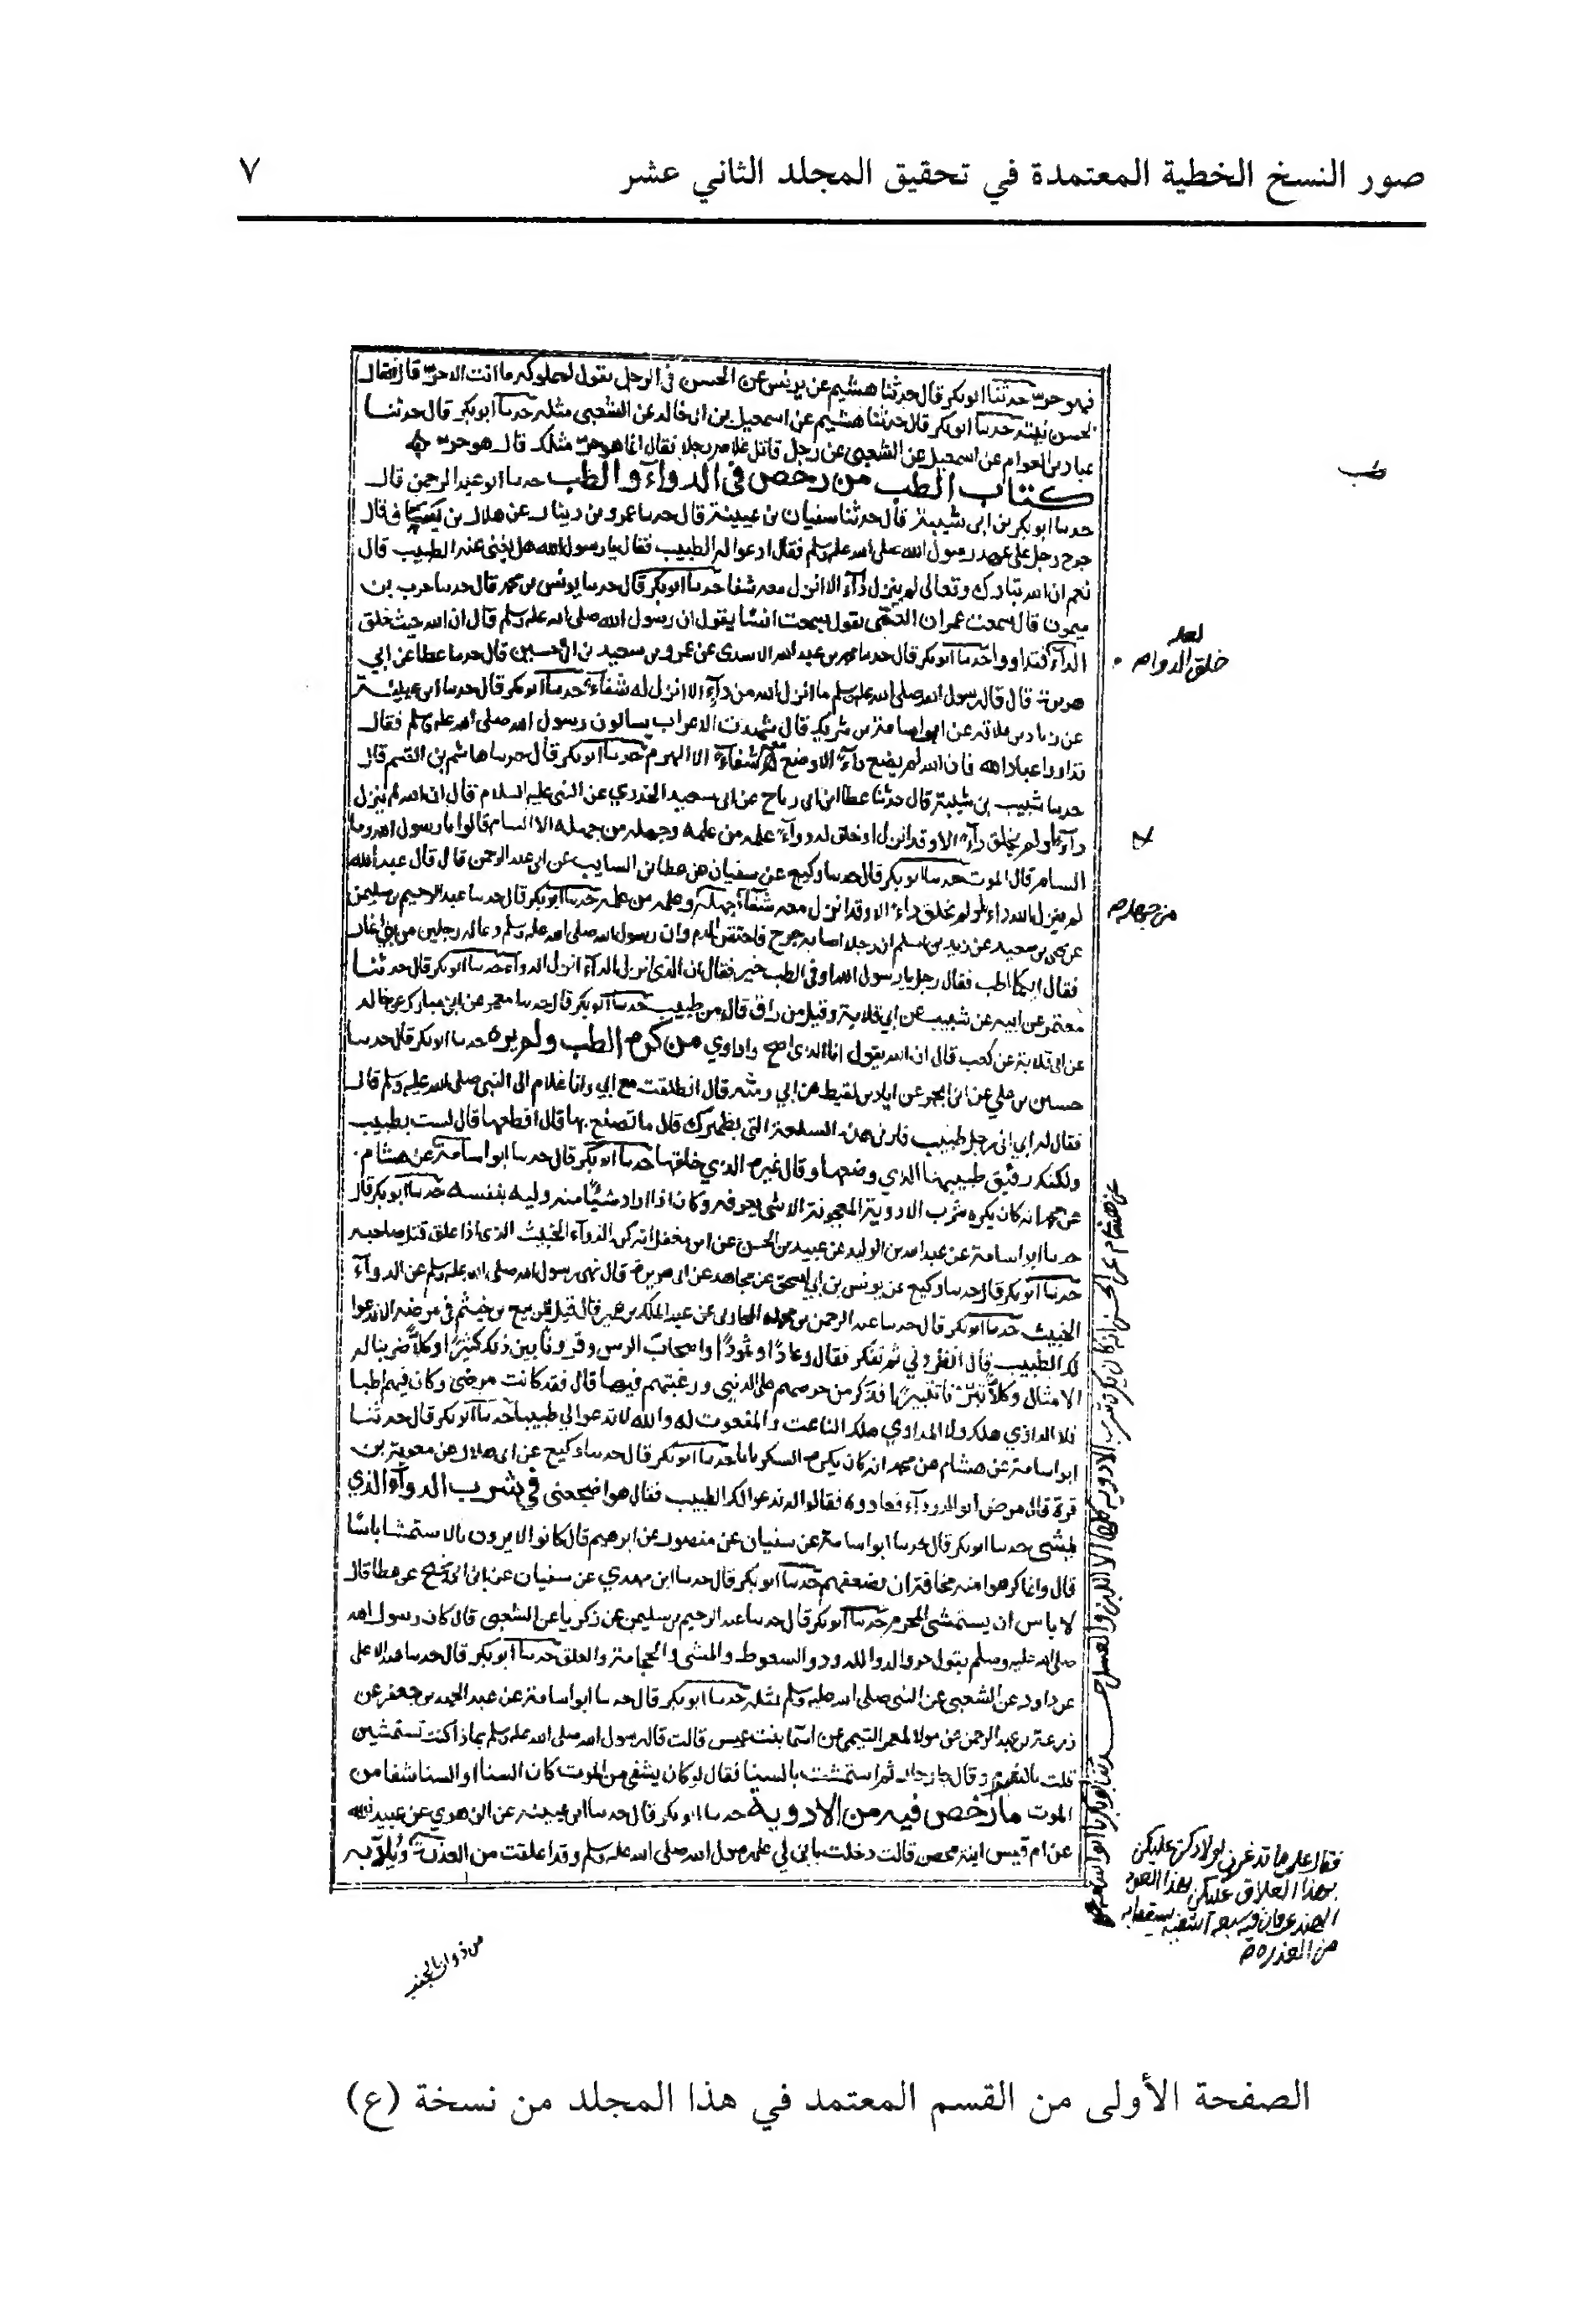 صور النسخ الخطية المعتمدة في تحقيق المجلد الثاني عشر
٧
فهو حر حدثنا ابو بكر قال حدثنا هشيم عن يونس عن الحسن في الرجل يقول لمملوكه ما انت الا حر قال فقال
الحسن نيته حدثنا ابو بكر قال حدثنا هشيم عن اسمعيل بن ابي خالد عن الشعبي مثله حدثنا ابو بكر قال حدثنا
عباد بن العوام عن اسمعيل عن الشعبي عن رجل قاتل غلامه رجلا فقال انما هو حر مثلك قال هو حر
كتاب الطب من رخص في الدواء والطب حدثنا ابو عبد الرحمن قال
حدثنا ابو بكر بن ابي شيبة قال حدثنا سفيان بن عيينة قال حدثنا عمرو بن دينار عن هلال بن يساف قال
جرح رجل على عهد رسول الله صلى الله عليه وسلم فقال ادعوا له الطبيب فقال يا رسول الله هل يغني عنه الطبيب قال
نعم ان الله تبارك وتعالى لم ينزل داء الا انزل معه شفا حدثنا ابو بكر قال حدثنا يونس بن محمد قال حدثنا حرب بن
ميمون قال سمعت عمران العمي يقول سمعت انسا يقول ان رسول الله صلى الله عليه وسلم قال ان الله حيث خلق
الداء فتداووا حدثنا ابو بكر قال حدثنا محمد بن عبد الله الاسدي عن عمرو بن سعيد بن ابي حسين قال حدثنا عطا عن ابي
هريرة قال قال رسول الله صلى الله عليه وسلم ما انزل الله من داء الا انزل له شفاء حدثنا ابو بكر قال حدثنا ابن عيينة
عن زياد بن علاقة عن اسامة بن شريك قال شهدت الاعراب يسالون رسول الله صلى الله عليه وسلم فقال
تداووا عباد الله فان الله لم يضع داء الا وضع معه شفاء الا الهرم حدثنا ابو بكر قال حدثنا هاشم بن القسم قال
حدثنا شبيب بن شيبة قال حدثنا عطا ابن ابي رباح عن ابي سعيد الخدري عن النبي عليه السلام قال ان الله لم ينزل
داء او لم يخلق داء الا وقد انزل او خلق له دواء علمه من علمه وجهله من جهله الا السام قالوا يا رسول الله وما
السام قال الموت حدثنا ابو بكر قال حدثنا وكيع عن سفيان عن عطا بن السايب عن ابي عبد الرحمن قال قال عبد الله
لم ينزل الله داء او لم يخلق داء الا وقد انزل معه شفاء جهله وعلمه من علمه حدثنا ابو بكر قال حدثنا عبد الرحيم بن سليمن
عن يحيى بن سعيد عن زيد بن اسلم ان رجلا اصابه جرح فاحتقن الدم وان رسول الله صلى الله عليه وسلم دعا له رجلين من بني انمار
فقال ايكما اطب فقال رجل يا رسول الله او في الطب خير فقال ان الذي انزل الداء انزل الدواء حدثنا ابو بكر قال حدثنا
معتمر عن ابيه عن شبيب عن ابي قلابة وقيل من راق قال من طبيب حدثنا ابو بكر قال حدثنا معمر عن ابن مبارك عن خالد
عن ابي قلابة عن كعب قال ان الله يقول انا الذي اصح واداوي من كره الطب ولم يره حدثنا ابو بكر قال حدثنا
حسين بن علي عن ابن ابجر عن اياد بن لقيط عن ابي رمثه قال انطلقت مع ابي وانا غلام الى النبي صلى الله عليه وسلم قال
فقال له ابي اني رجل طبيب فارني هذه السلعة التي بظهرك قال ما تصنع بها قال اقطعها قال لست بطبيب
ولكنك رفيق طبيبها الذي وضعها وقال غيره الذي خلقها حدثنا ابو بكر قال حدثنا ابو اسامة عن هشام
عن محمد انه كان يكره شرب الادوية المعجونة الا شي يعرفه وكان اذا اراد شيا منه وليه بنفسه حدثنا ابو بكر قال
حدثنا ابو اسامة عن عبد الله بن الوليد عن عبيد بن الحسن عن ابن مغفل انه كره الدواء الخبيث الذي اذا علق قتل صاحبه
حدثنا ابو بكر قال حدثنا وكيع عن يونس بن ابي اسحق عن مجاهد عن ابي هريرة قال نهى رسول الله صلى الله عليه وسلم عن الدواء
الخبيث حدثنا ابو بكر قال حدثنا عبد الرحمن بن محمد المحاربي عن عبد الملك بن عمير قال قيل للربيع بن خيثم في مرضه الا ندعوا
لك الطبيب قال انظروني ثم تفكر فقال وعادا وثمودا واصحاب الرس وقرونا بين ذلك كثيرا وكلا ضربنا له
الامثال وكلا تبرنا تتبيرا فذكر من حرصهم على الدنيا ورغبتهم فيها قال فقد كانت مرضى وكان فيهم اطبا
فلا المداوي هلك ولا المداوي هلك الناعت والمنعوت له والله لا تدعوا لي طبيبا حدثنا ابو بكر قال حدثنا
ابو اسامة عن هشام عن محمد انه كان يكره السكر حدثنا ابو بكر قال حدثنا وكيع عن ابي هلال عن معوية بن
قرة قال مرض ابو الدرداء فعادوه فقالوا له ندعوا لك الطبيب فقال هو اضجعني في شرب الدواء الذي
يمشي حدثنا ابو بكر قال حدثنا ابو اسامة عن سفيان عن منصور عن ابرهيم قال كانوا لا يرون بالاستمشا باسا
قال وانما كرهوا منه مخافة ان يضعفهم حدثنا ابو بكر قال حدثنا ابن مهدي عن سفيان عن ابن ابي نجيح عن عطا قال
لا باس ان يستمشي المحرم حدثنا ابو بكر قال حدثنا عبد الرحيم بن سليمن عن زكريا عن الشعبي قال كان رسول الله
صلى الله عليه وسلم يقول خير الدواء اللدود والسعوط والمشي والحجامة والعلق حدثنا ابو بكر قال حدثنا عبد الاعلى
عن داود عن الشعبي عن النبي صلى الله عليه وسلم مثله حدثنا ابو بكر قال حدثنا ابو اسامة عن عبد الحميد بن جعفر عن
زرعة بن عبد الرحمن عن مولا لمعمر التيمي عن اسما بنت عميس قالت قال رسول الله صلى الله عليه وسلم بماذا كنت تستمشين
قلت بالشبرم وقال حار حار ثم استمشت بالسنا فقال لو كان يشفي من الموت كان السنا او السنا شفا من
الموت ما رخص فيه من الادوية حدثنا ابو بكر قال حدثنا ابن عيينة عن الزهري عن عبيد الله
عن ام قيس ابنة محصن قالت دخلت بابن لي على رسول الله صلى الله عليه وسلم وقد اعلقت من العذرة
طب
لعله
خلق الدواء
من جهله
فقال على ما تدغرن اولادكن عليكن
بهذا العلاق عليكن بهذا العود
الهندي فان فيه سبعة اشفية يسعط به
من العذرة
من ذوات الجنب
الصفحة الأولى من القسم المعتمد في هذا المجلد من نسخة (ع)